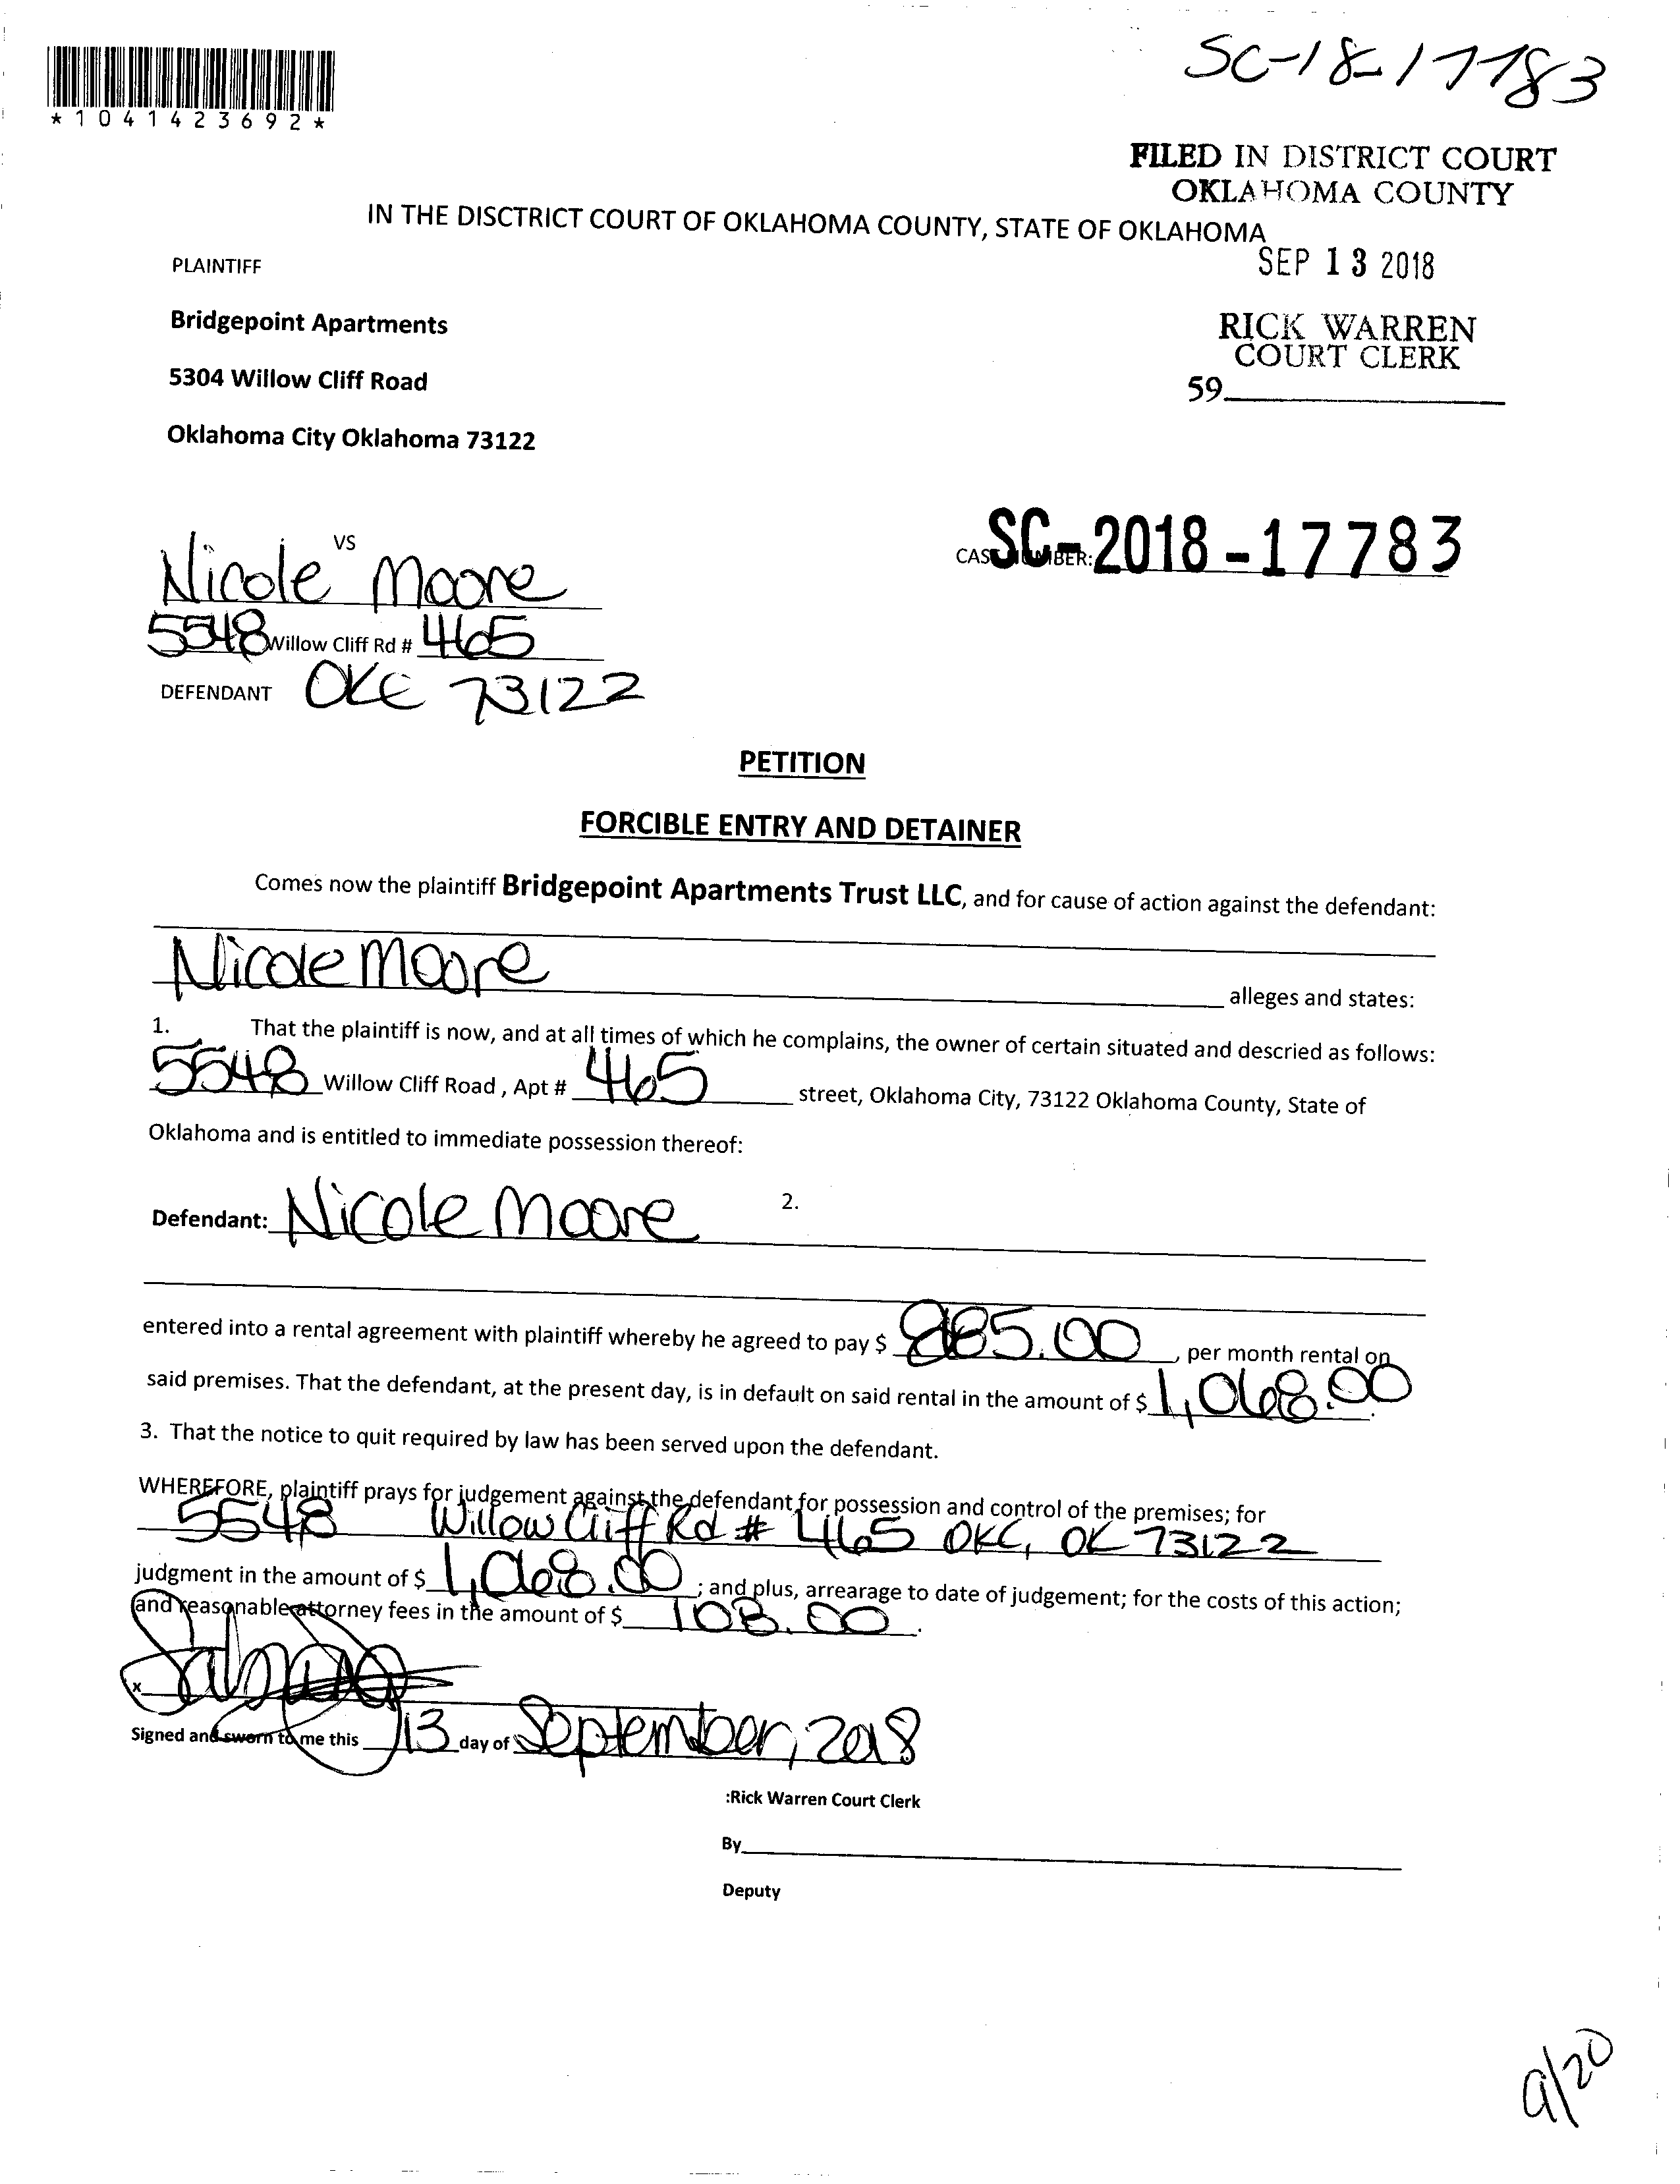 SC-18-17783
*1041423692*
FILED IN DISTRICT COURT
OKLAHOMA COUNTY
IN THE DISCTRICT COURT OF OKLAHOMA COUNTY, STATE OF OKLAHOMA
SEP 13 2018
PLAINTIFF
RICK WARREN
COURT CLERK
59
Bridgepoint Apartments
5304 Willow Cliff Road
Oklahoma City Oklahoma 73122
VS
Nicole Moore
CASE NUMBER: SC-2018-17783
5548 Willow Cliff Rd # 465
DEFENDANT OKC 73122
PETITION
FORCIBLE ENTRY AND DETAINER
Comes now the plaintiff Bridgepoint Apartments Trust LLC, and for cause of action against the defendant:
Nicole Moore alleges and states:
1. That the plaintiff is now, and at all times of which he complains, the owner of certain situated and descried as follows:
5548 Willow Cliff Road , Apt # 465 street, Oklahoma City, 73122 Oklahoma County, State of
Oklahoma and is entitled to immediate possession thereof:
Defendant: Nicole Moore 2.
entered into a rental agreement with plaintiff whereby he agreed to pay $ , per month rental on
said premises. That the defendant, at the present day, is in default on said rental in the amount of $ 1,068.00.
3. That the notice to quit required by law has been served upon the defendant.
WHEREFORE, plaintiff prays for judgement against the defendant for possession and control of the premises; for
5548 Willow Cliff Rd # 465 OKC, OK 73122
judgment in the amount of $ 1,068.00 ; and plus, arrearage to date of judgement; for the costs of this action;
and reasonable attorney fees in the amount of $ 108.00.
x
Signed and sworn to me this 13 day of September, 2018
:Rick Warren Court Clerk
By
Deputy
9/20